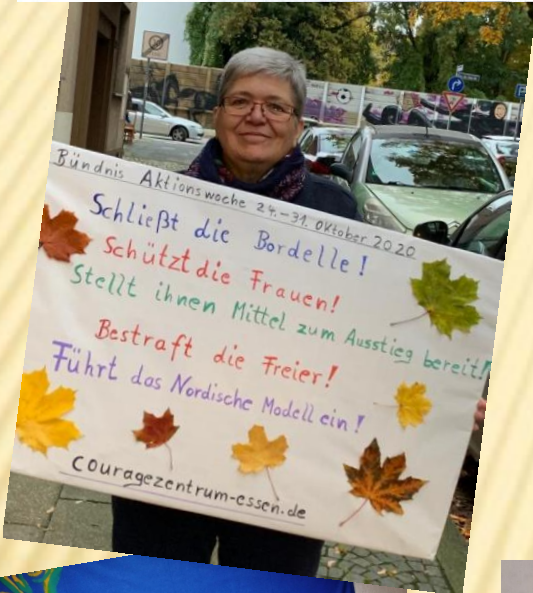 Bündnis Aktionswoche 24.-31. Oktober 2020
Schließt die Bordelle!
Schützt die Frauen!
Stellt ihnen Mittel zum Ausstieg bereit!
Bestraft die Freier!
Führt das Nordische Modell ein!
couragezentrum-essen.de